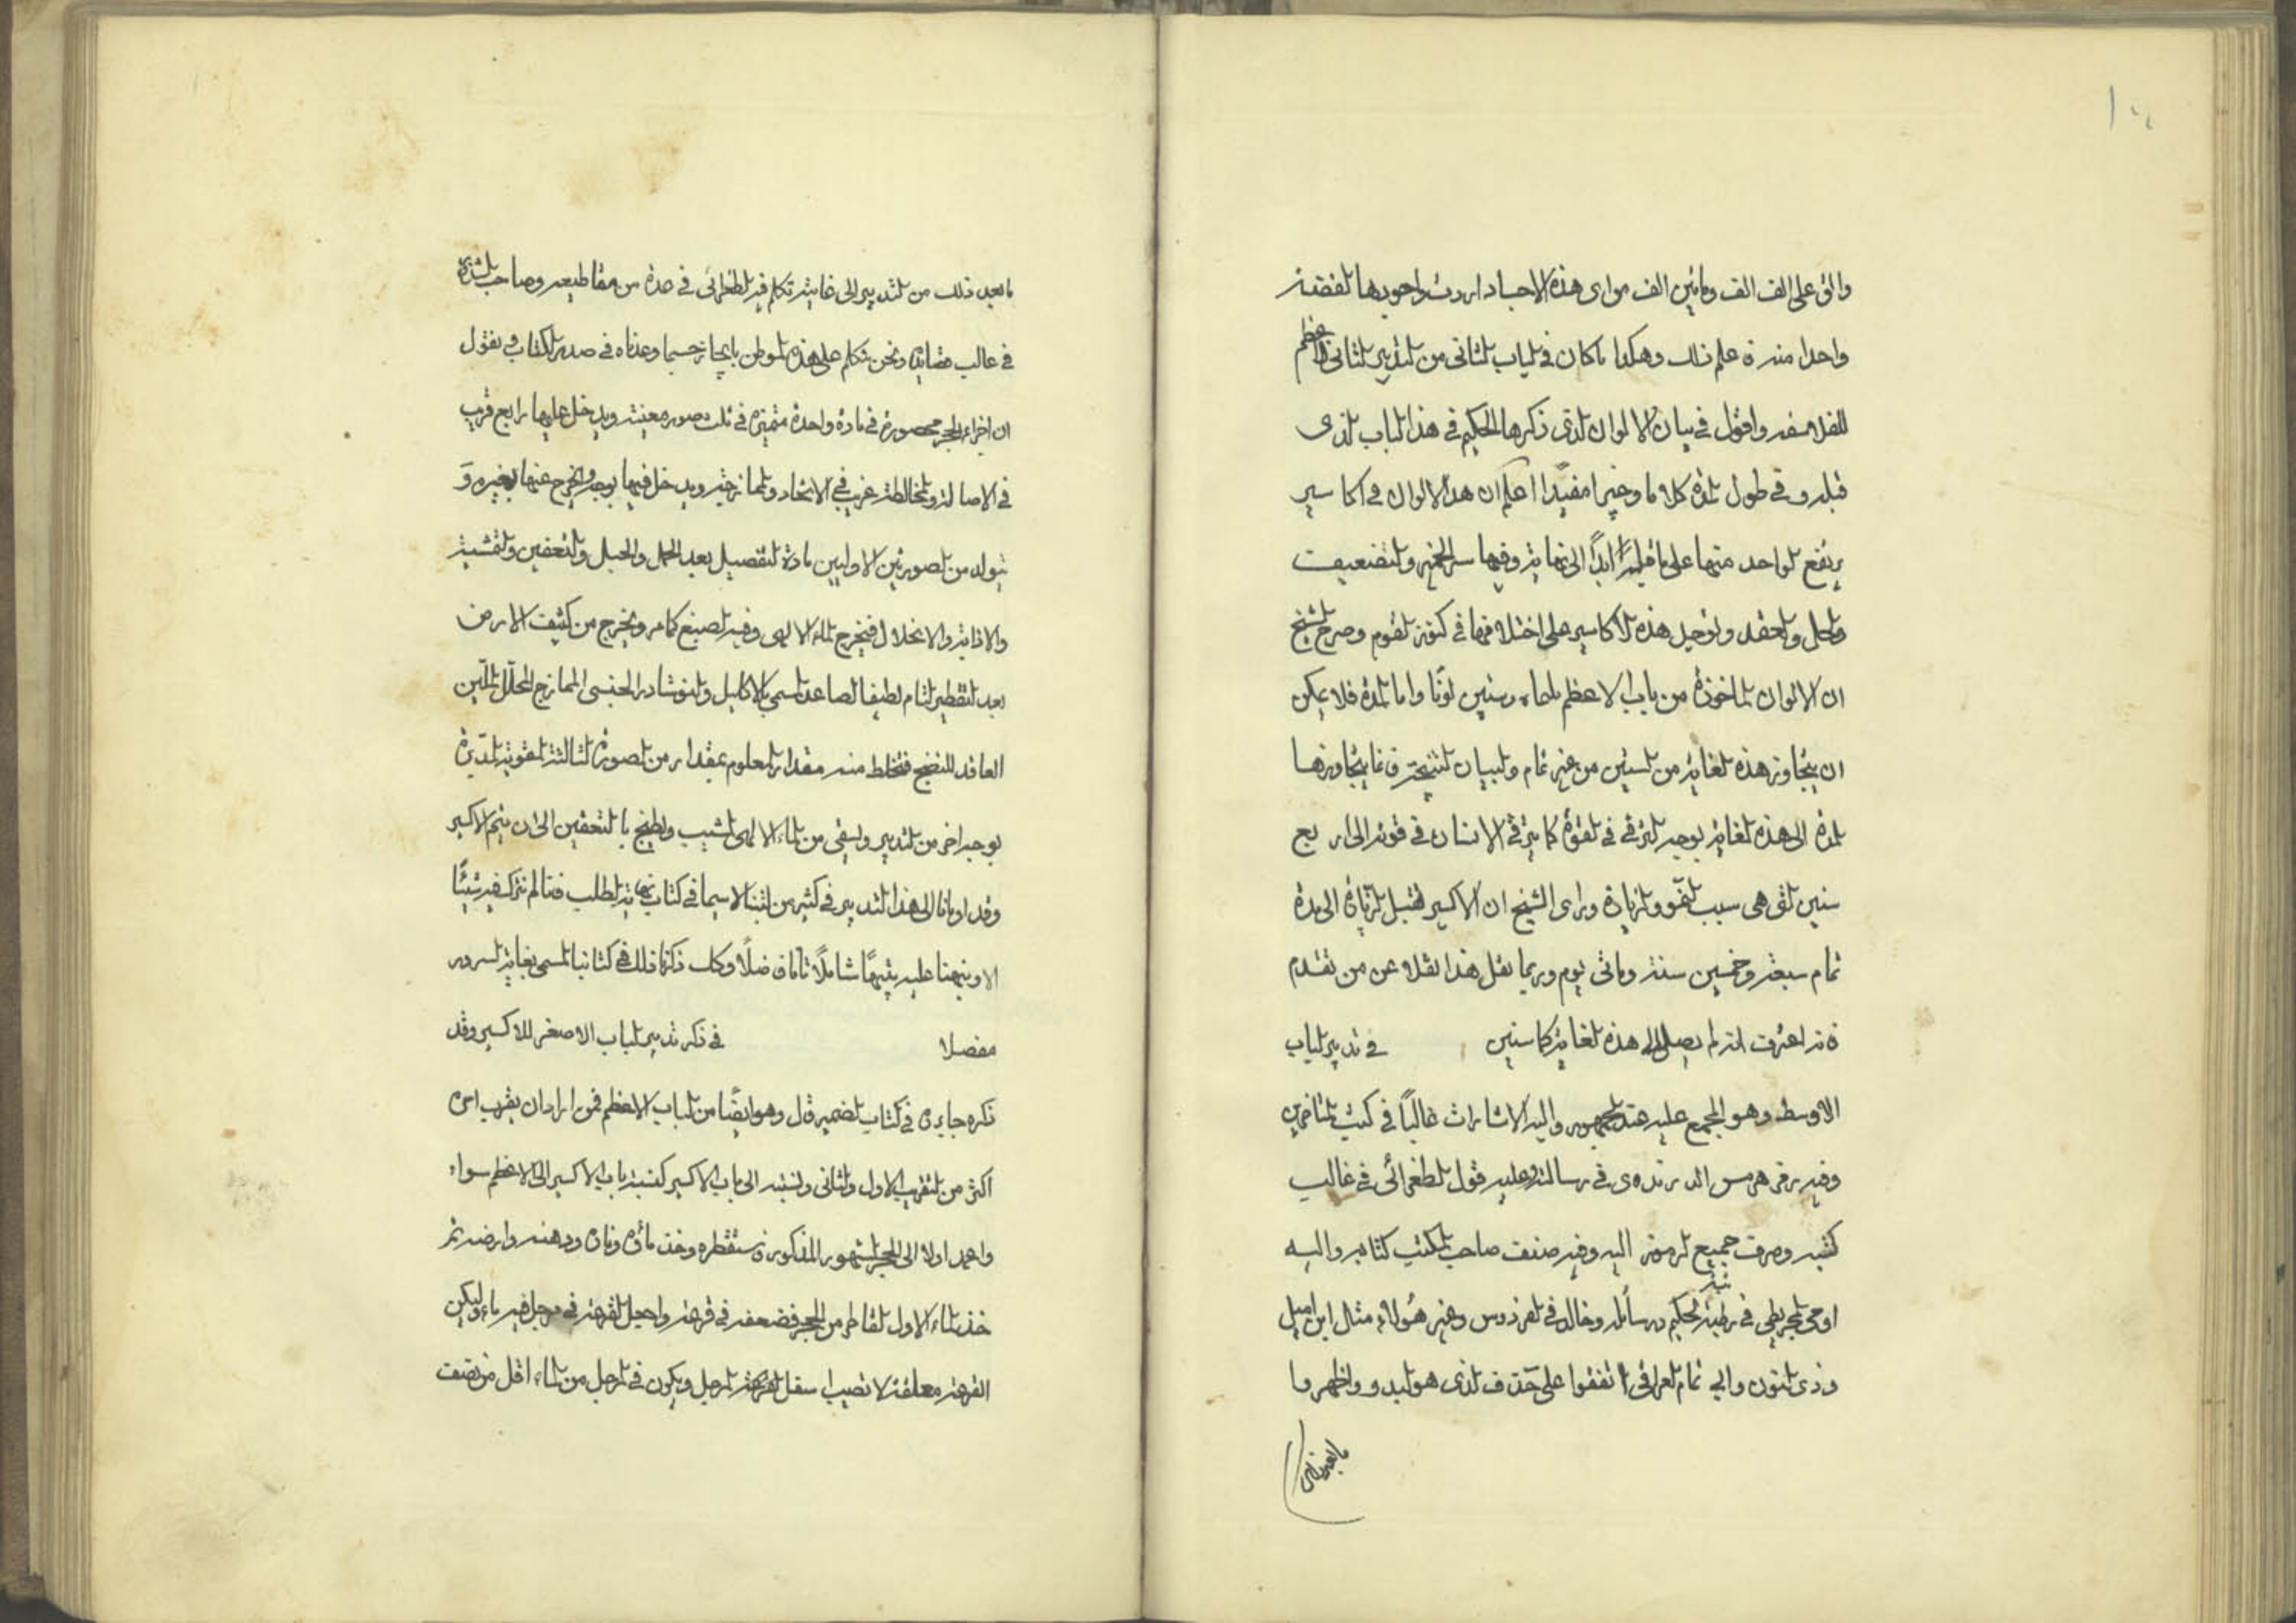 والق على الف الف ومائتين الف من اى هذه الاجساد اردت واجودها الفضة
واحدا منه فاعلم ذلك وهكذا ما كان فى الباب الثانى من التدبير الثانى الاعظم
للفلاسفه واقول فى بيان الالوان الذى ذكرها الحكيم فى هذا الباب الذى
قبله وفى طول المدة كلاما وجيزا مفيدا اعلم ان هذه الالوان فى اكاسير
يرتفع الواحد منها على ما قبله ابدًا الى نهايته وفيها سر الخمير والتضعيف
والحل والعقد وتوجد هذه الاكاسير على اختلافها فى كنوز القوم وصرح الشيخ
ان الالوان الماخوذة من باب الاعظم وستين لونًا واما المدة فلا يمكن
ان يتجاوز هذه الغاية من السنين من غير تمام والبيان يتجاوزها
المدة الى هذه الغاية بوجه الترقى فى القوة كما يترقى الانسان فى قوته الى اربع
سنين التى هى سبب النمو والزيادة وراى الشيخ ان الاكسير تقبل الزيادة الى مدة
تمام سبعة وخمسين سنة ومائى يوم وربما نقل هذا نقلا عن من تقدم
فانه اعترف انه لم يصل الى هذه الغاية كما سنين فى تدبير الباب
الاوسط وهو المجمع عليه عند الجمهور واليه الاشارات غالبًا فى كتب المتاخرين
وفيه رمز هرمس فى رسالته وعليه قول الطغرائى فى غالب
كتبه وصرف جميع الرموز اليه وفيه صنف صاحب المكتسب كتابه واليه
اومى المجريطى فى رتبة الحكيم ورسائله وخالد فى الفردوس وغير هؤلاء مثال ابن اميل
وذى النون وابى تمام العراقى اتفقوا على حذف الذى هو البدو واظهروا
ما بعد ذلك
ما بعد ذلك من التدبير الى غايته تكلم فيه الطغرائى فى عدة من مقاطيعه وصاحب الشذور
فى غالب قصائده ونحن نتكلم على هذه المواطن بايجاز حسبما وعدناه فى صدر الكتاب فنقول
ان اجزاء الحجر محصورة فى مادة واحدة متميزة فى ثلث صور معينة ويدخل عليها رابع قريب
فى الاصالة والمخالطة غريب فى الاتحاد والممازجة ويدخل فيها بوجه ويخرج عنها بغيره و
يتولد من الصورتين الاوليين مادة التفصيل بعد الحمل والحبل والتعفين والتمشية
والاذابة والانحلال فيخرج الماء الالهى وفيه الصبغ كما مر ويخرج من كثيف الارض
بعد التقطير التام لطيفا لصاعد المسمى بالاكليل والنوشادر الجنسى الممازج المحلل الملين
العاقد للنضج فتخلط منه مقدار المعلوم بمقدار من الصورة الثالثة المقوية المدبرة
بوجه اخر من التدبير ويسقى من الماء الالهى المشبب ويطبخ بالتعفين الى ان يتم الاكسير
وقد اومانا الى هذا التدبير فى كثير من كتبنا لاسيما فى كتاب نهاية الطلب فانا لم نترك فيه شيئًا
الا ونبهنا عليه تنبيهًا شاملًا تامًا فاضلًا وكان ذكرنا ذلك فى كتابنا المسمى بغاية السرور
مفصلا فى ذكر تدبير الباب الاصغر للاكسير وقد
ذكره جابر فى كتاب الضمير قال وهو ايضًا من الباب الاعظم فمن اراد ان يقرب امره
اكثر من التقريب الاول والثانى ونسبته الى باب الاكبر كنسبة باب الاكبر الى الاعظم سواء
واعمد اولا الى الحجر المشهور المذكور فاستقطره وخذ مائه وناره ودهنه وارضه ثم
خذ الماء الاول القاطر من الحجر فضعفه فى قرعة واجعل القرعة فى مرجل فيه ماء وليكن
القرعة معلقة لا تصيب اسفل القرعة المرجل ويكون فى المرجل من الماء اقل من نصف